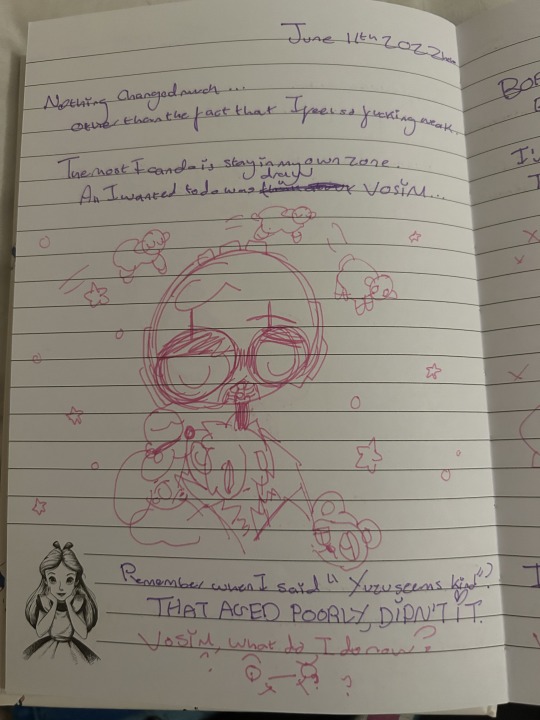 June 11th 2022
Nothing changed much ...
other than the fact that I feel so fucking weak.
The most I can do is stay in my own zone.
draw
All I wanted to do was VOSiM...
Remember when I said "Yuzu seems kind"?
THAT AGED POORLY, DiDN'T iT.
VOSiM, what do I do now?
? ? ?
BO
I'